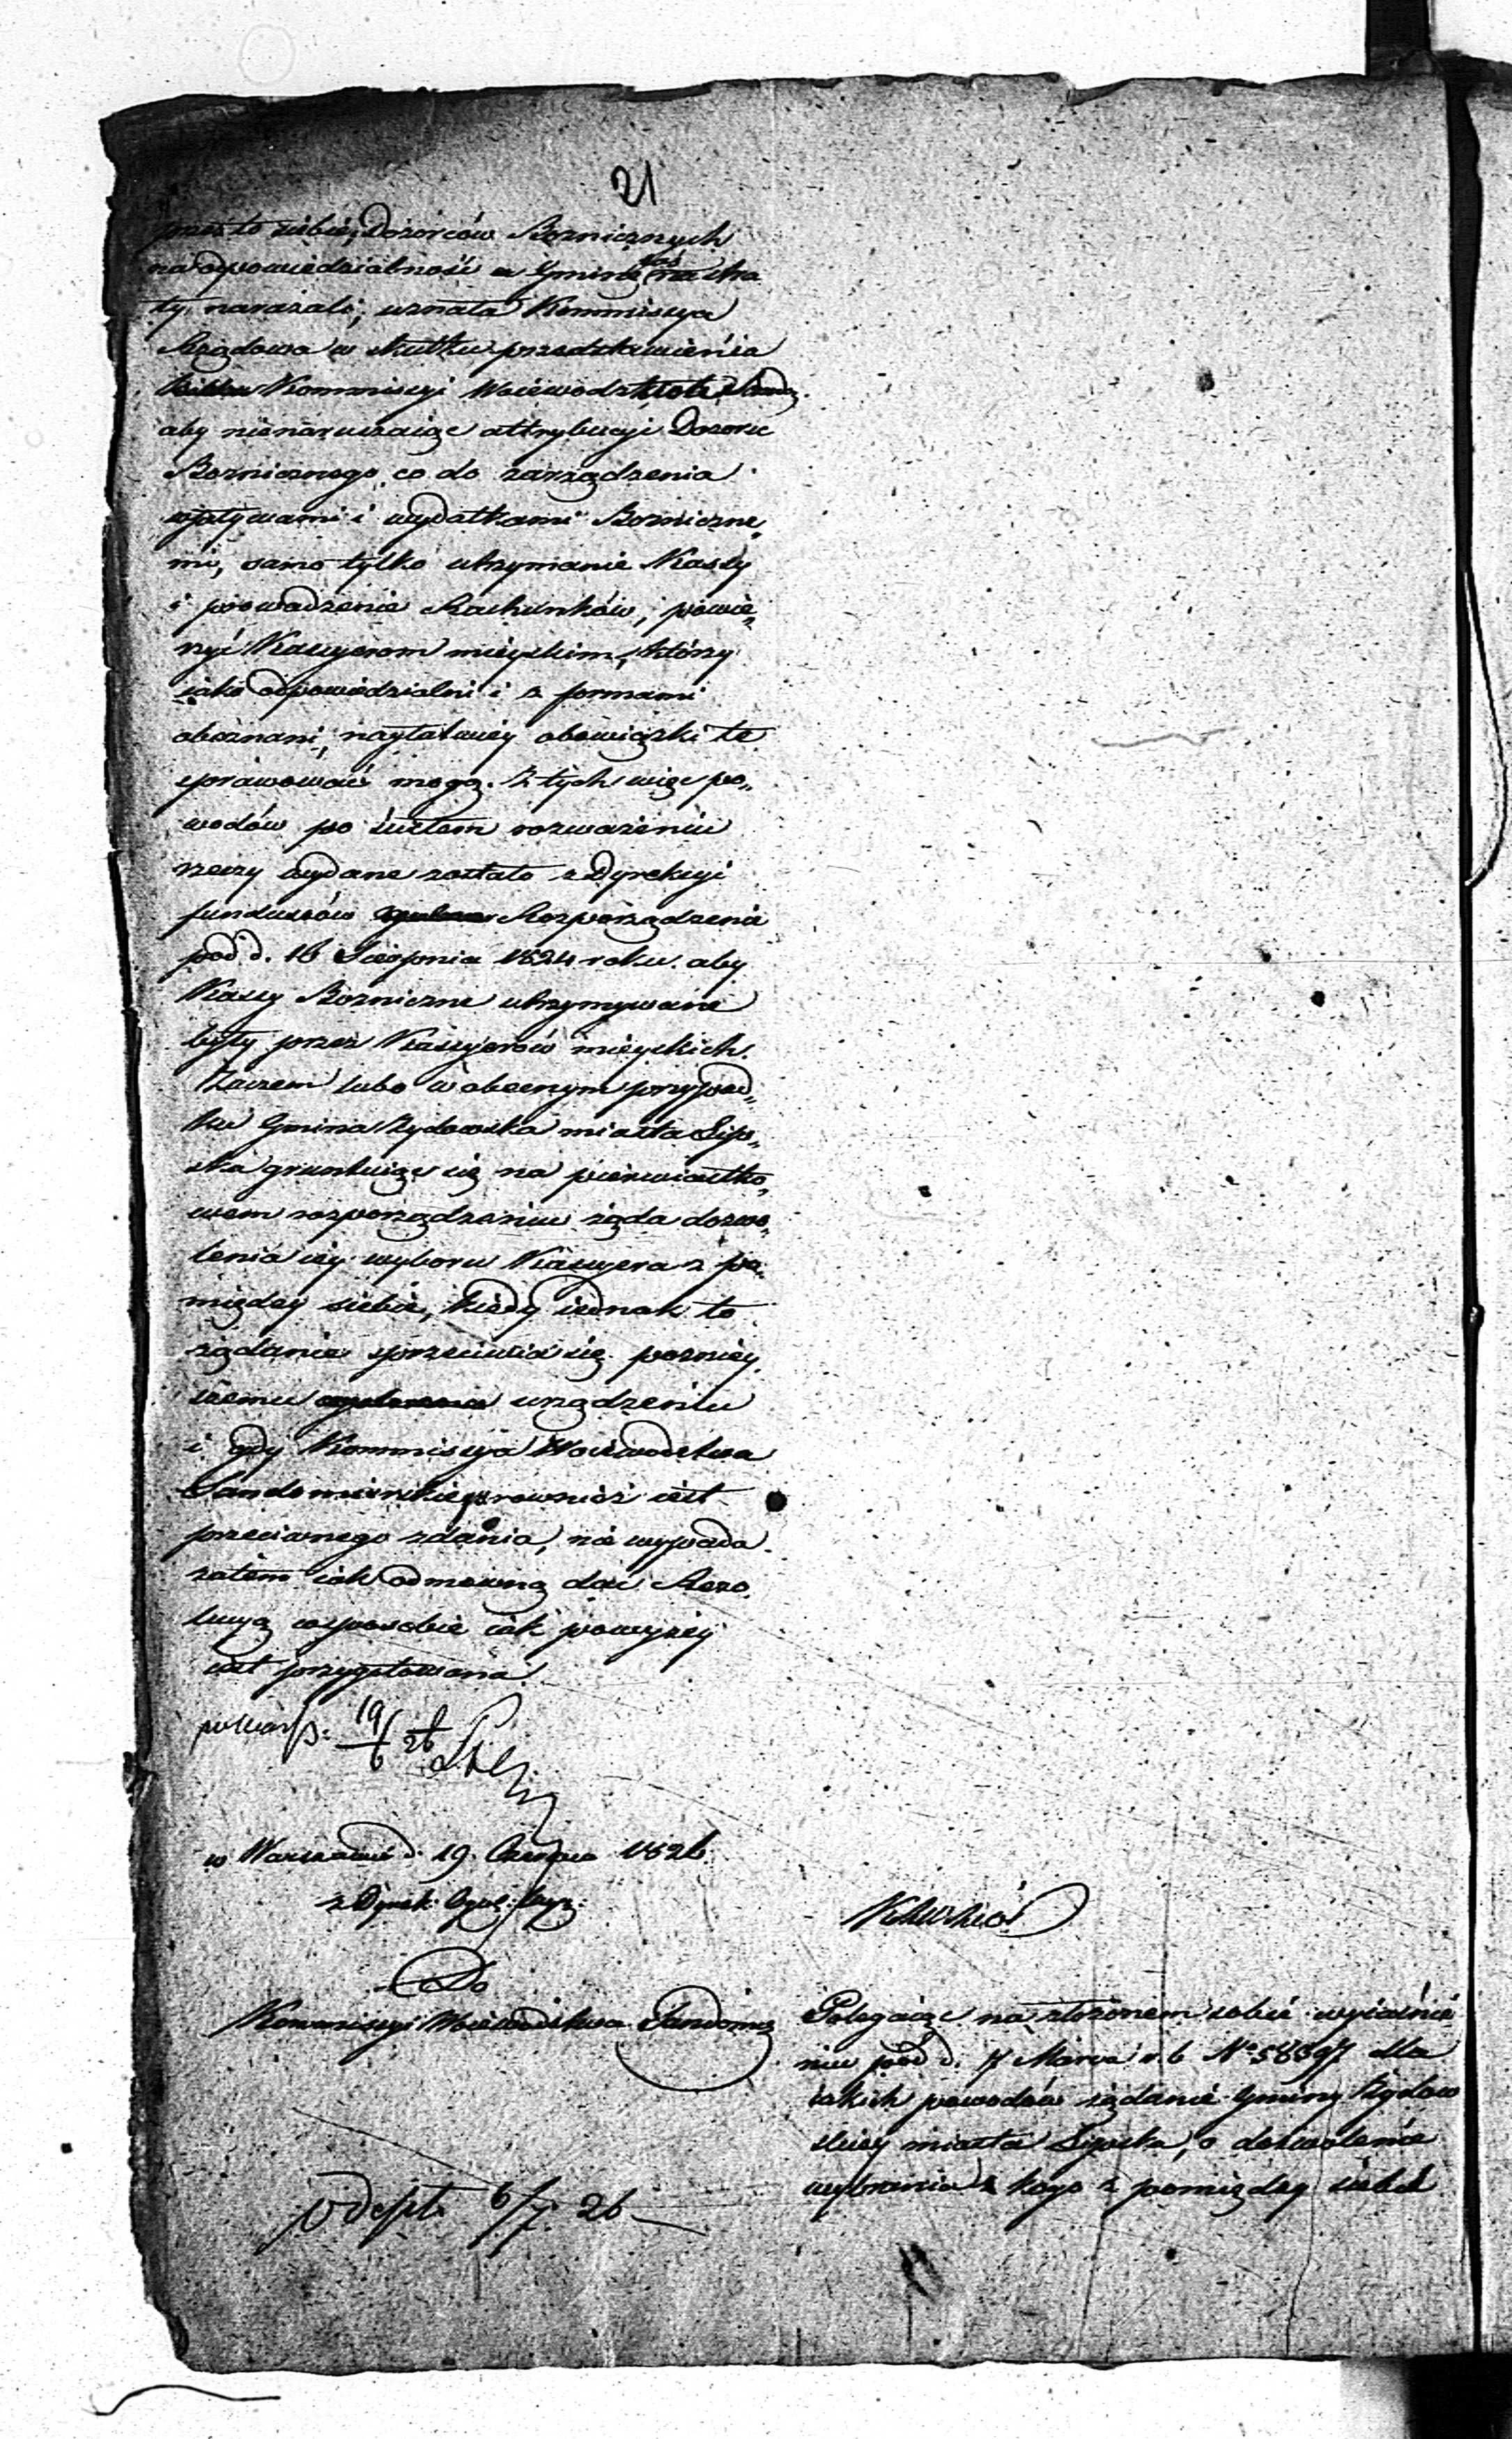 21
przez to siebie, Dozorców Boznicznych
na odpowiedzialność a Gminę zaś na stra
ty narażali; uznała Kommissya
Rządowa w skutku przedstawienia
Kommissyi Woiewodztw
aby nienaruszaiąc attrybucyi Dozoru
Boznicznego, co do zarządzenia
wpływami i wydatkami Boznicznе„
mi, samo tylko utrzymanie Kassy
i prowadzenie Rachunków, powie„
rzyć Kassyerom mieyskim, którzy
iako odpowiedzialni i z formami
obeznani, nayłatwiey obowiązki te
sprawować mogą. Z tych więc po„
wodów po ścisłem rozważeniu
rzeczy wydane zostało z Dyrekcyi
funduszów Rozporządzenie
pod d. 16 Sierpnia 1824 roku. aby
Kassy Bozniczne utrzymywane
były przez Kassyerów mieyskich.
Zaczem lubo w obecnym przypad„
ku Gmina Żydowska miasta Lip„
ska gruntuiąc się na pierwiastko„
wem rozporządzeniu żąda dozwo„
lenia iey wyboru Kassyera z po„
między siebie, kiedy iednak to
żądanie sprzeciwia się poźniey„
szemu urządzeniu
i gdy Kommissya Woiewodztwa
Sandomierskiego rownież iest
przeciwnego zdania, nie wypada
zatem iak odmowną dać Rezo„
lucyą w sposobie iak powyżey
iest przygotowana.
19/6 26
w Warszawie d. 19 Czerwca 1826
z Dyrek:
Do
Kommissyi Woiewodztwa Sandomie
Polegaiąc na złożonem sobie wyiaśnie
niu pod d. 7 Marca r. b. No 58897 dla
iakich powodów żądanie Gminy Żydow
skiey miasta Lipska, o dozwolenie
wybrania kogo z pomiędzy siebie
6/7 26